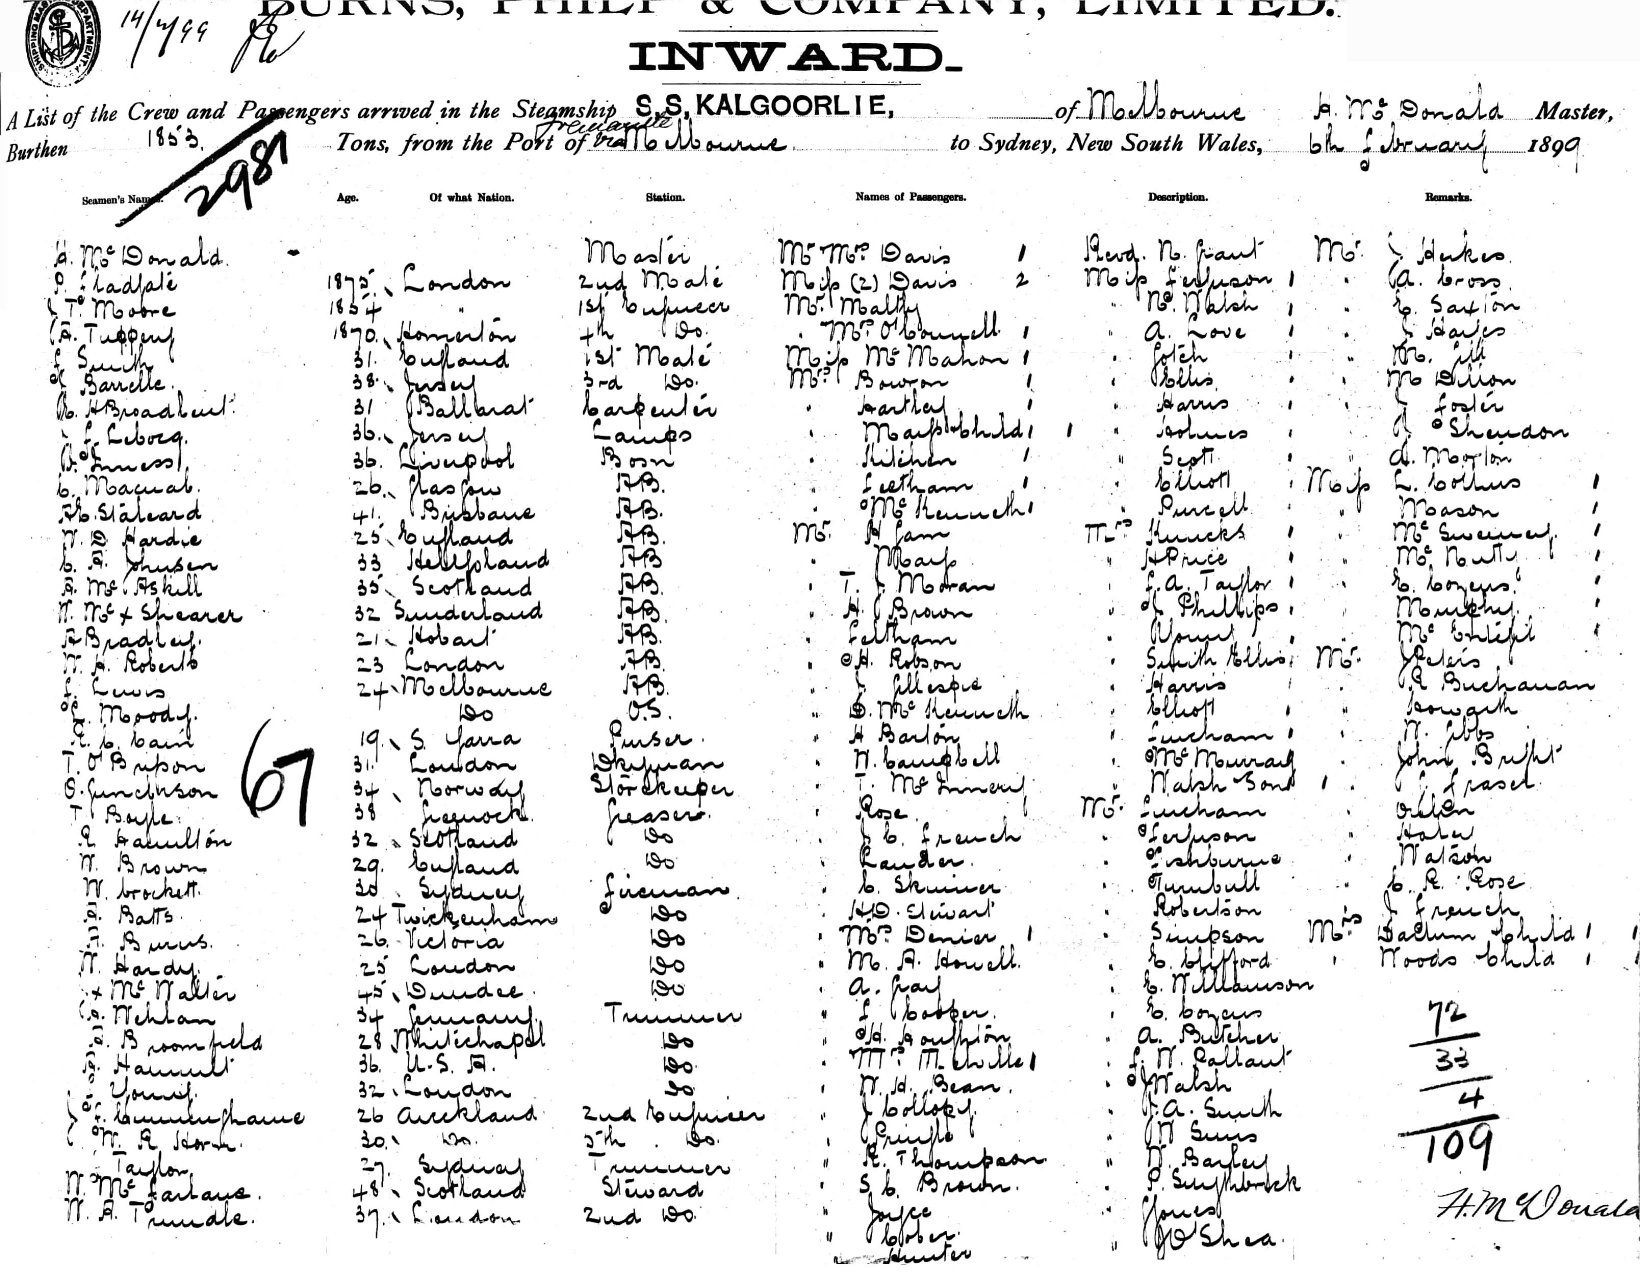 BURNS, PHILP & COMPANY, LIMITED.
14/2/99
INWARD.
A List of the Crew and Passengers arrived in the Steamship S.S. KALGOORLIE, of Melbourne H. McDonald Master,
Burthen 1853. Tons, from the Port of Fremantle via Melbourne to Sydney, New South Wales, 6th February 1899
2987
Seamen's Names. Age. Of what Nation. Station. Names of Passengers. Description. Remarks.
H. McDonald. Master Mr Mrs Davis 1 Revd. N. Grant Mr. J Herkes
1875 London 2nd Mate Miss (2) Davis 2 Miss Ferguson 1 " A. Cross
Moore 1854 " 1st Engineer Mr. Malty " N. Walsh 1 " C. Saxton
A. Tuppeny 1870 Homerton 4th Do. " Mrs O'Connell 1 " A. Love 1 " J Hayes
Smith 31. England 1st Mate Miss McMahon 1 " Gotch " M. Gill
Barrelle. 38. Jersey 3rd Do. Mrs Bowron 1 " Ellis " M Dillon
H Broadbent. 31 Ballarat Carpenter " Hartley 1 " Harris 1 " J Foster
Lebocq. 36. Jersey Lamps " Marsh Child 1 1 " Holmes 1 " Shendon
Inness. 36. Liverpool Bosn " Kitchen 1 " Scott " A. Morton
C. Macnab. 26. Glasgow AB. " Leetham 1 " Elliott 1 Miss L. Collins 1
41. Brisbane AB. " McKenneth 1 " Purcell " Mason 1
W. D Hardie 25 England AB. Mr. H Jam Mrs Knucks 1 " McSweeney. 1
C. A. Johnsen 33 Heligoland AB " Marsh " H Price 1 " McNutt 1
A. McAskill 35 Scotland AB. " T. J. Moran " F. A. Taylor 1 " C. Cozens. 1
W. Mc x Shearer 32 Sunderland AB. " H. J Brown " J Phillips 1 " Murphy. 1
A Bradley. 21. Hobart AB. " Feltham " Young " McEntefil 1
W. H. Roberts 23 London AB. " H. Robson " Smith Ellis 1 Mr. J Peters
F. Lewis 24 Melbourne AB. " J Gillespie " Harris 1 " R Buchanan
Moody. Do O.S. " D. McKenneth " Elliott 1 " Howarth
R. C. Cain 19. S. Yarra Purser. " H Barton " Lincham 1 " W. Gibbs
T. O'Brien 31. London Dkeyman " N. Campbell " McMurray " John Bright
67
34 Norway Storekeeper " T. McInnery " Walsh Son 1 " J. Fraser
T Boyle. 38 Greenock. Greaser. " Rose Mr. Lincham
R Hamilton 32 Scotland Do " J. C. French " Ferguson " Haley
W. Brown 29. England Do " Lauder. " Fishburne " Watson
W. Crockett. 30 Sydney Fireman " C. Skinner " Turnbull " C. R. Rose
Batts. 24 Twickenham Do " H. D. Stewart " Robertson " J French
Burns. 26. Victoria Do " Mrs Denier 1 " Simpson Mrs Child 1 1
W. Hardy. 25 London Do " M. A. Howell. " E. Clifford " Woods Child 1 1
x McWalter 45 Dundee. Do " A. Gray " E. Williamson
Wehlan 34 Germany. Trimmer " F. Cooper. " C. Cozens 72
Broomfield 28 Whitechapel Do " H. Houghton " A. Butcher
36. U.S.A. Do " Mrs Melville 1 " F. W. Pallant 33
Young. 32. London Do " W. H. Bean. " J Walsh
Cunninghame 26 Auckland 2nd Engineer " J Collopy. " J. A. Smith 4
W. R Horn. 30. Do. 5th Do. " Pringle " W Sims 109
Taylor 27. Sydney Trimmer " R. Thompson " W. Barley
W. McFarlane. 48 Scotland Steward " S. C. Brown. "
W. A. Trundle. 37. London 2nd Do. " Joyce " Jones H. McDonald
" Cober. " J O'Shea.
" Hunter